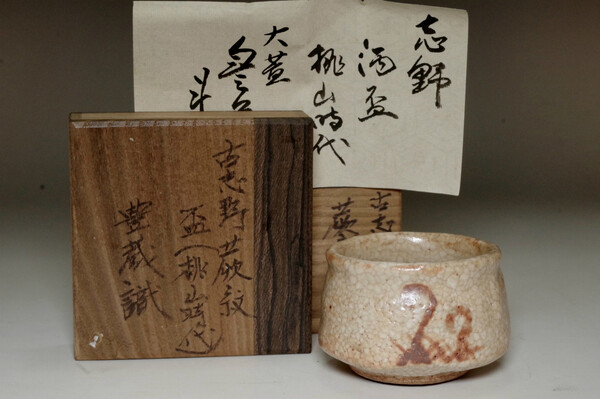 志野
酒盃
桃山時代
大萱
斗
古志野蕨紋
盃(桃山時代)
豊蔵識
古志